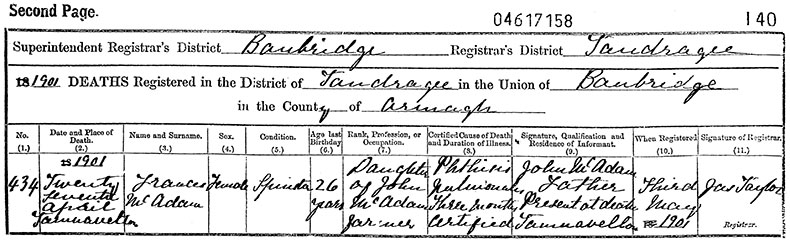 Second Page.
04617158
140
Superintendent Registrar's District Banbridge Registrar's District Tandragee
181901 DEATHS Registered in the District of Tandragee in the Union of Banbridge
in the County of Armagh
No. (1.) Date and Place of Death. (2.) Name and Surname. (3.) Sex. (4.) Condition. (5.) Age last Birthday (6.) Rank, Profession, or Occupation. (7.) Certified Cause of Death and Duration of Illness. (8.) Signature, Qualification and Residence of Informant. (9.) When Registered (10.) Signature of Registrar. (11.)
434
181901
Twenty
seventh
April
Tamnavelton
Frances
McAdam
Female
Spinster
26
years
Daughter
of John
McAdam
Farmer
Phthisis
pulmonary
Three months
Certified
John McAdam
Father
Present at death
Tamnavelton
Third
May
181901
Jas Taylor
Registrar.